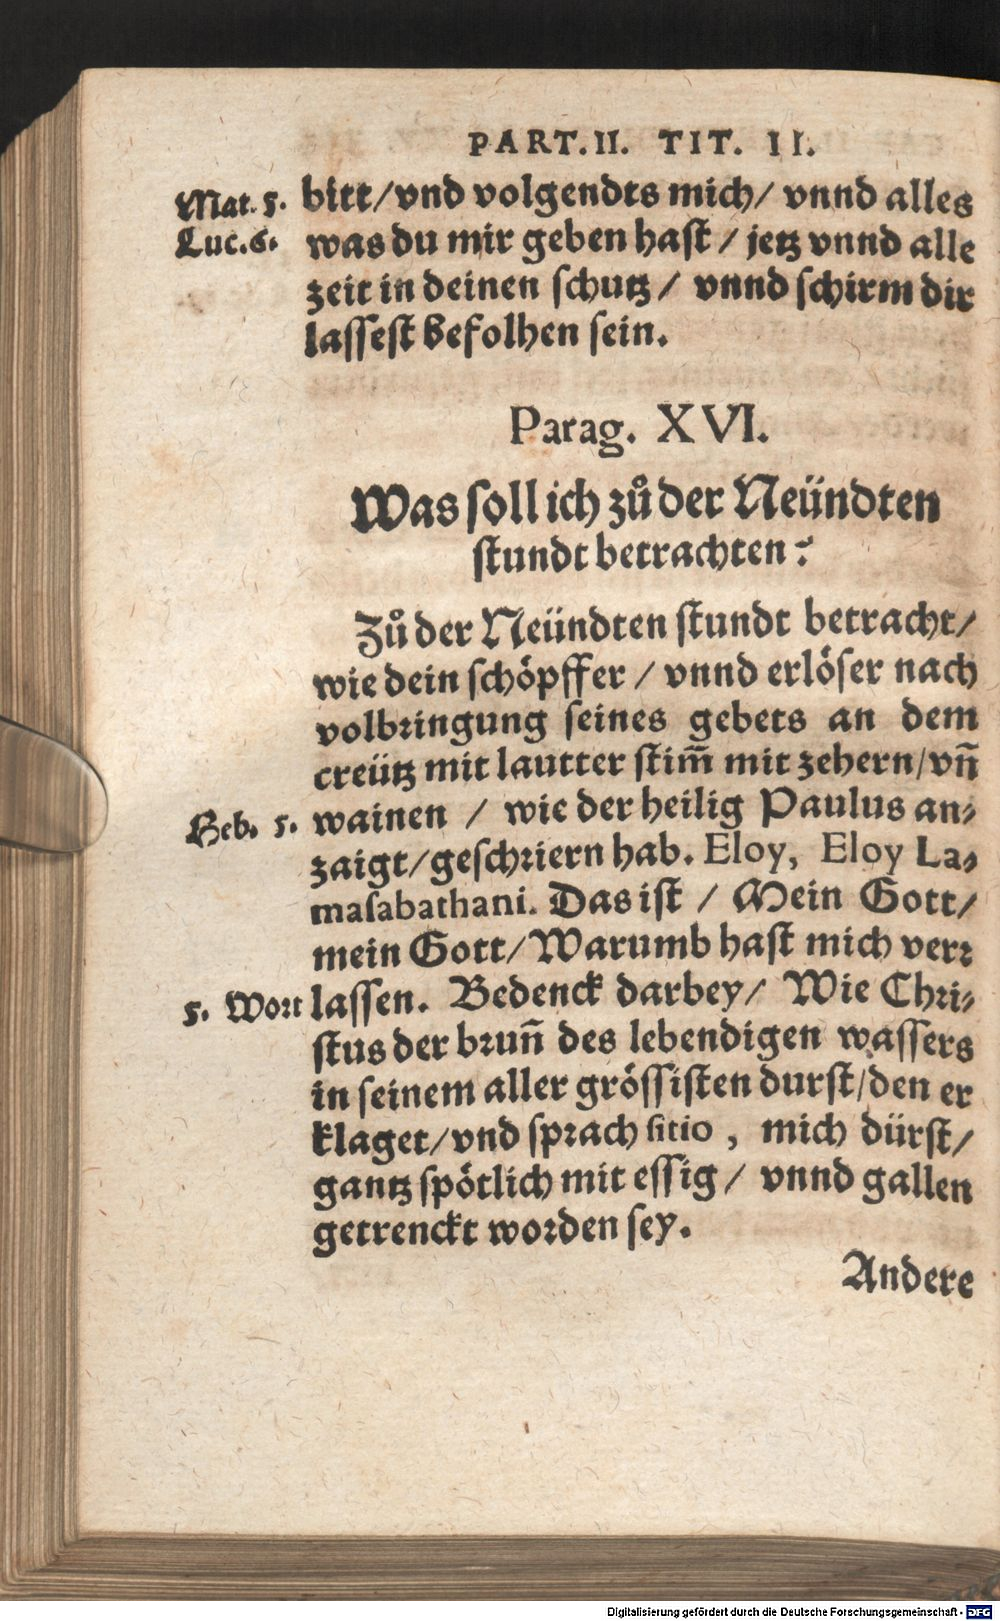 PART. II. TIT. II.
Mat. 5. bitt/vnd volgendts mich/ vnnd alles
Luc. 6. was du mir geben hast / jetz vnnd alle
zeit in deinen schutz / vnnd schirm dir
lassest befolhen sein.
Parag. XVI.
Was soll ich zů der Neündten
stundt betrachten?
Zů der Neündten stundt betracht/
wie dein schöpffer / vnnd erlöser nach
volbringung seines gebets an dem
creütz mit lautter stim̃ mit zehern/vñ
Heb. 5. wainen / wie der heilig Paulus an-
zaigt/geschriern hab. Eloy, Eloy La-
masabathani. Das ist / Mein Gott/
mein Gott/Warumb hast mich ver-
5. Wort lassen. Bedenck darbey/ Wie Chri-
stus der brun̄ des lebendigen wassers
in seinem aller grössisten durst/den er
klaget/vnd sprach sitio, mich dürst/
gantz spötlich mit essig / vnnd gallen
getrenckt worden sey.
Andere
Digitalisierung gefördert durch die Deutsche Forschungsgemeinschaft - DFG